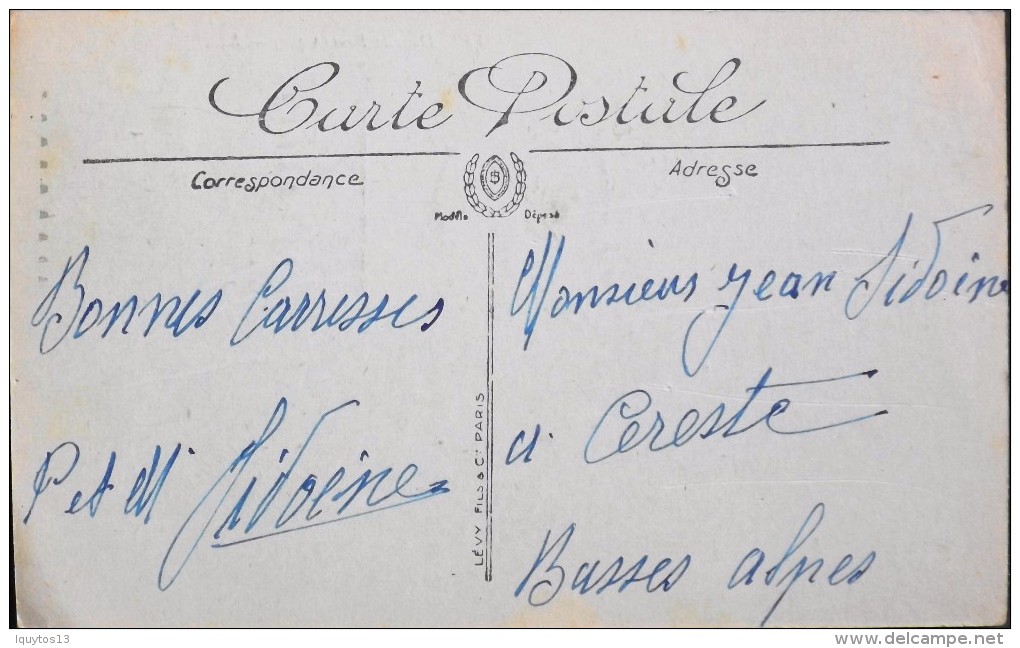 Carte Postale
Correspondance
Adresse
Modèle Déposé
Bonnes Carresses
P et M Sidoine
LÉVY FILS & Cie PARIS
Monsieur Jean Sidoine
à Cereste
Basses alpes
lquytos13
www.delcampe.net